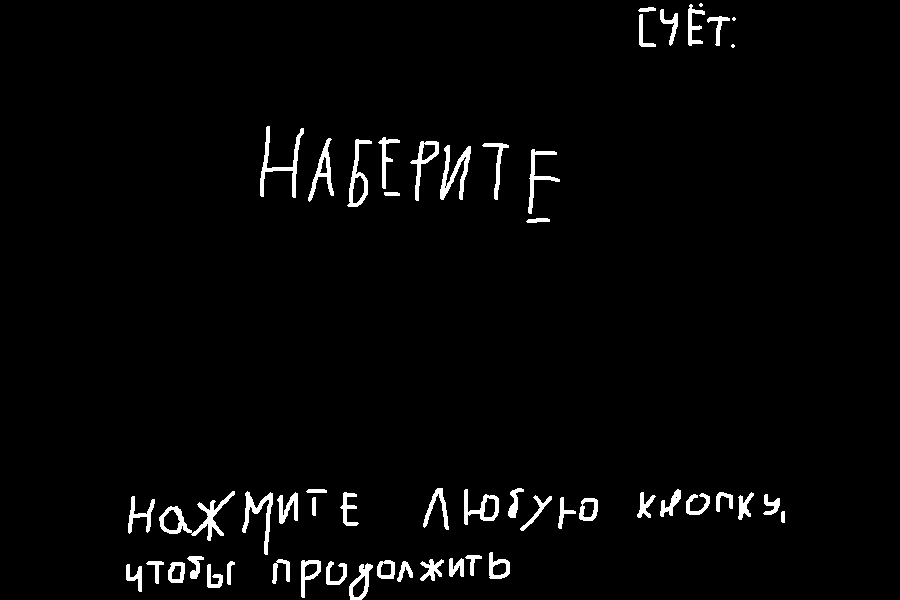 СЧЁТ:
НАБЕРИТЕ
НаЖМИТЕ Любую кнопку,
чтобы продолжить